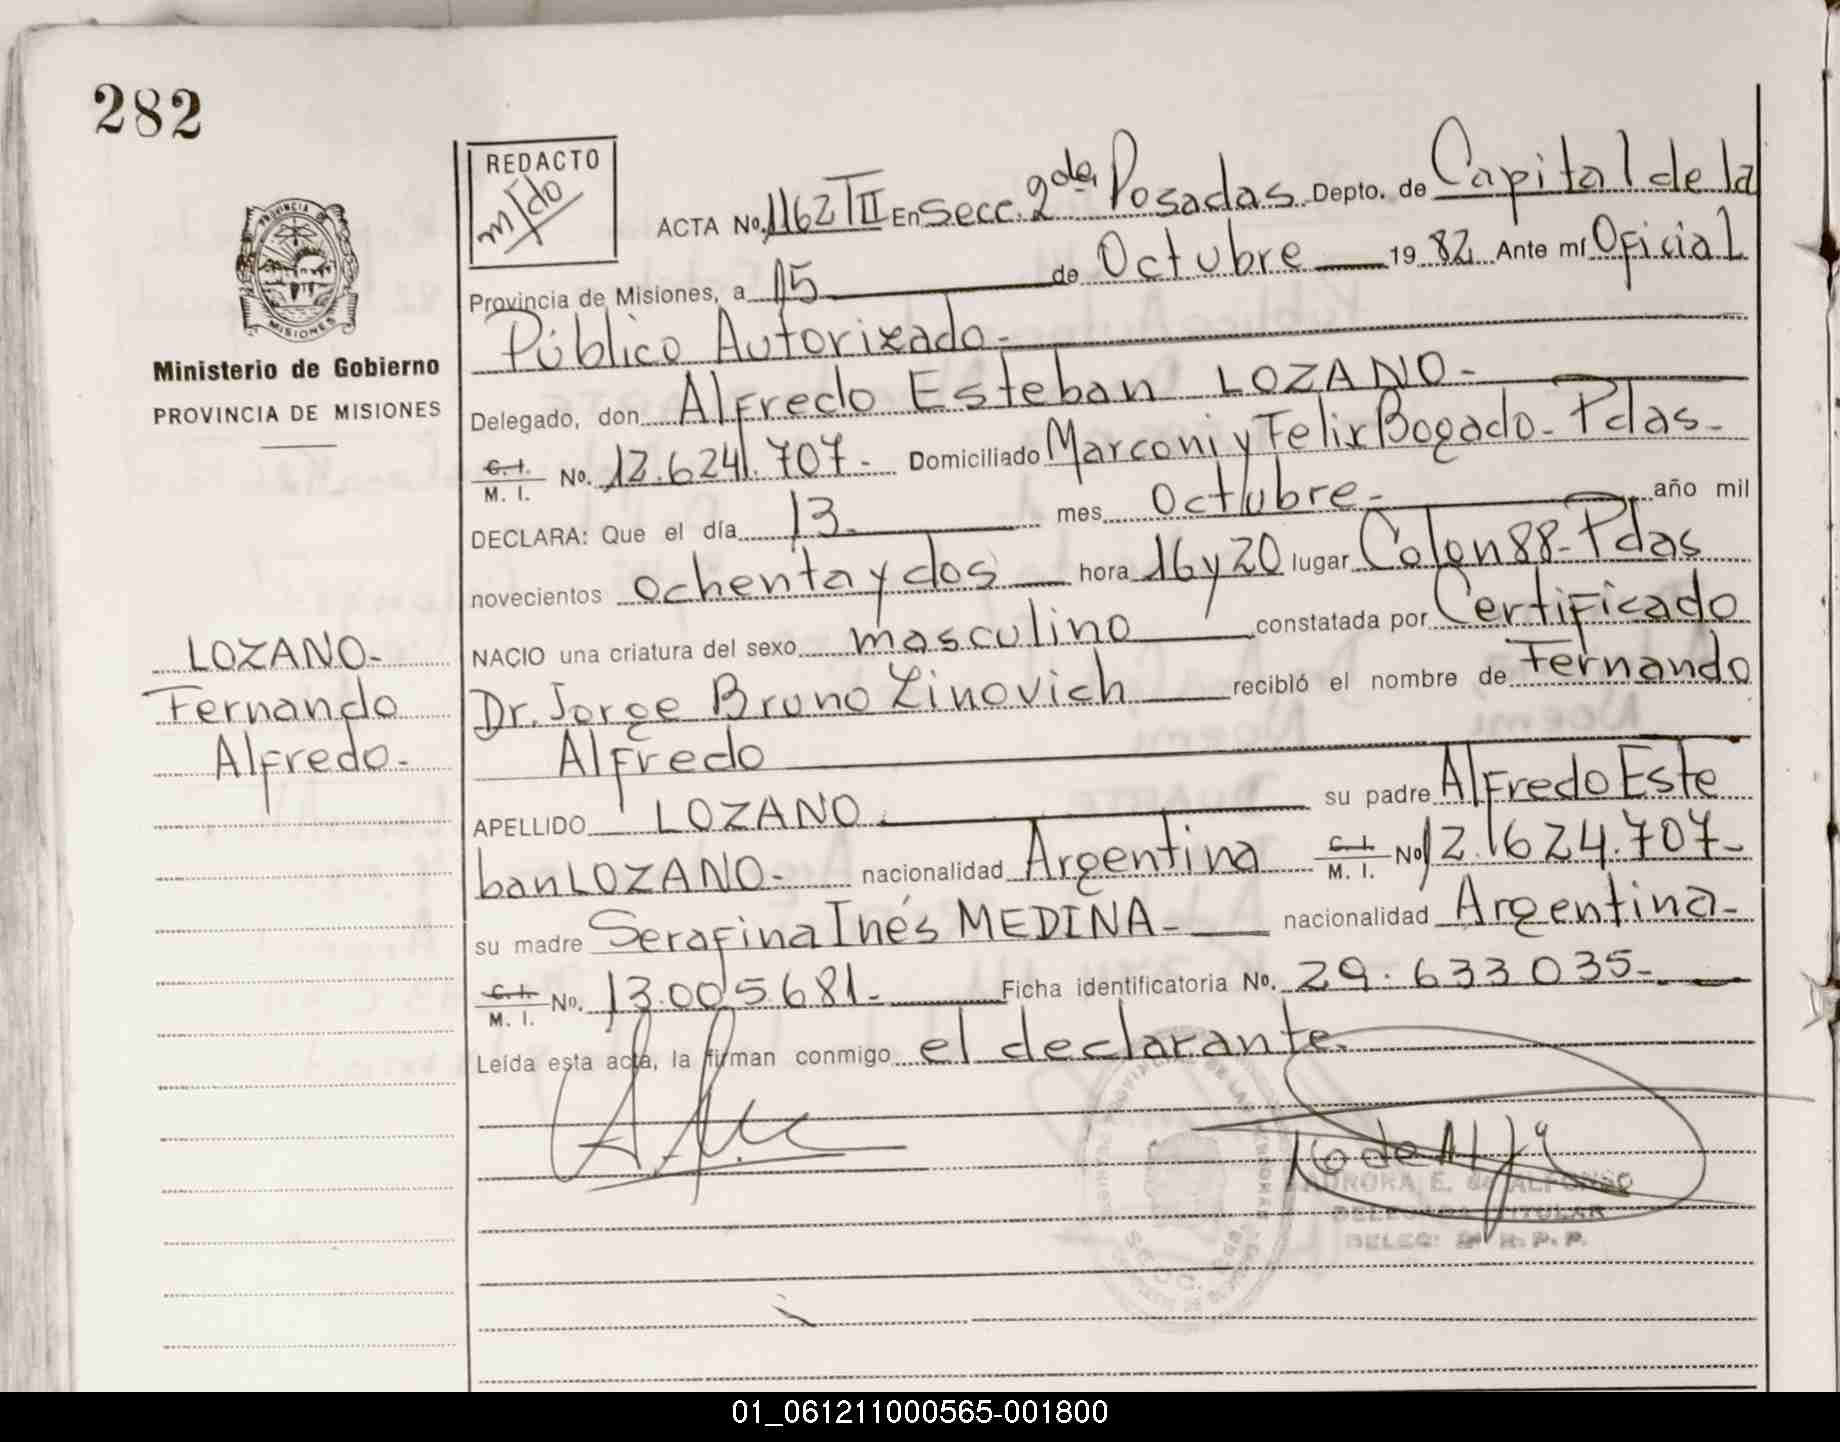 282
REDACTO
m/do
ACTA No. 1162 TII En Secc. 2da. Posadas Depto. de Capital de la
Provincia de Misiones, a 15 de Octubre 1982 Ante mí Oficial
Público Autorizado-
Ministerio de Gobierno
PROVINCIA DE MISIONES
Delegado, don Alfredo Esteban LOZANO-
C. I. / M. I. No. 12.624.707- Domiciliado Marconi y Felix Bogado- Pdas-
DECLARA: Que el día 13- mes Octubre- año mil
novecientos ochenta y dos hora 16 y 20 lugar Colon 88- Pdas
NACIO una criatura del sexo masculino constatada por Certificado
Dr. Jorge Bruno Zinovich recibió el nombre de Fernando
Alfredo
LOZANO-
Fernando
Alfredo-
APELLIDO LOZANO. su padre Alfredo Este
ban LOZANO- nacionalidad Argentina C. I. / M. I. No 12.624.707-
su madre Serafina Inés MEDINA- nacionalidad Argentina-
C. I. / M. I. No. 13.005.681- Ficha identificatoria No. 29.633035-
Leída esta acta, la firman conmigo el declarante.
AURORA E. de ALFONSO
DELEGADA TITULAR
01_061211000565-001800